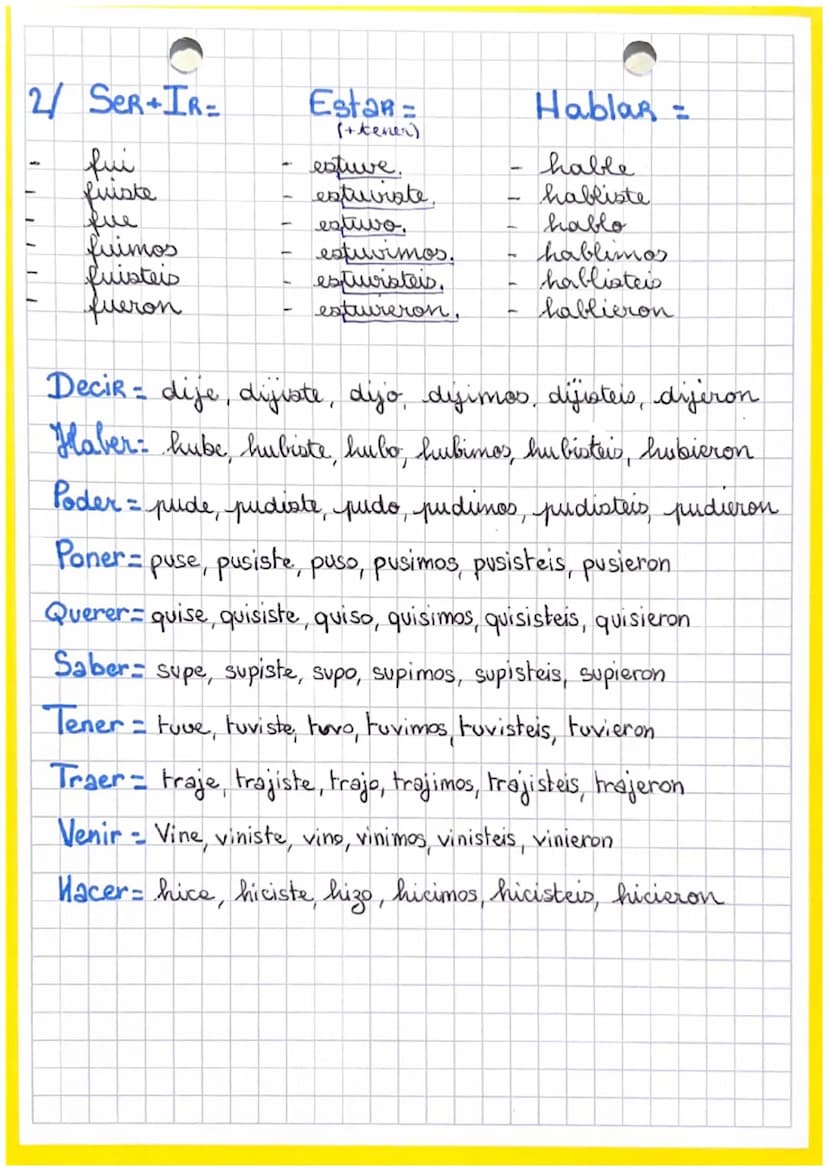 2/ SER+IR= Estar= Hablar =
(+tener)
- fui - estuve. - hable
- fuiste - estuviste. - habliste
- fue - estuvo. - hablo
- fuimos - estuvimos. - hablimos
- fuisteis - estuvisteis. - hablisteis
- fueron - estuvieron. - hablieron
Decir= dije, dijiste, dijo, dijimos, dijisteis, dijeron
Haber= hube, hubiste, hubo, hubimos, hubisteis, hubieron
Poder= pude, pudiste, pudo, pudimos, pudisteis, pudieron
Poner= puse, pusiste, puso, pusimos, pusisteis, pusieron
Querer= quise, quisiste, quiso, quisimos, quisisteis, quisieron
Saber= supe, supiste, supo, supimos, supisteis, supieron
Tener= tuve, tuviste, tuvo, tuvimos, tuvisteis, tuvieron
Traer= traje, trajiste, trajo, trajimos, trajisteis, trajeron
Venir= Vine, viniste, vino, vinimos, vinisteis, vinieron
Hacer= hice, hiciste, hizo, hicimos, hicisteis, hicieron